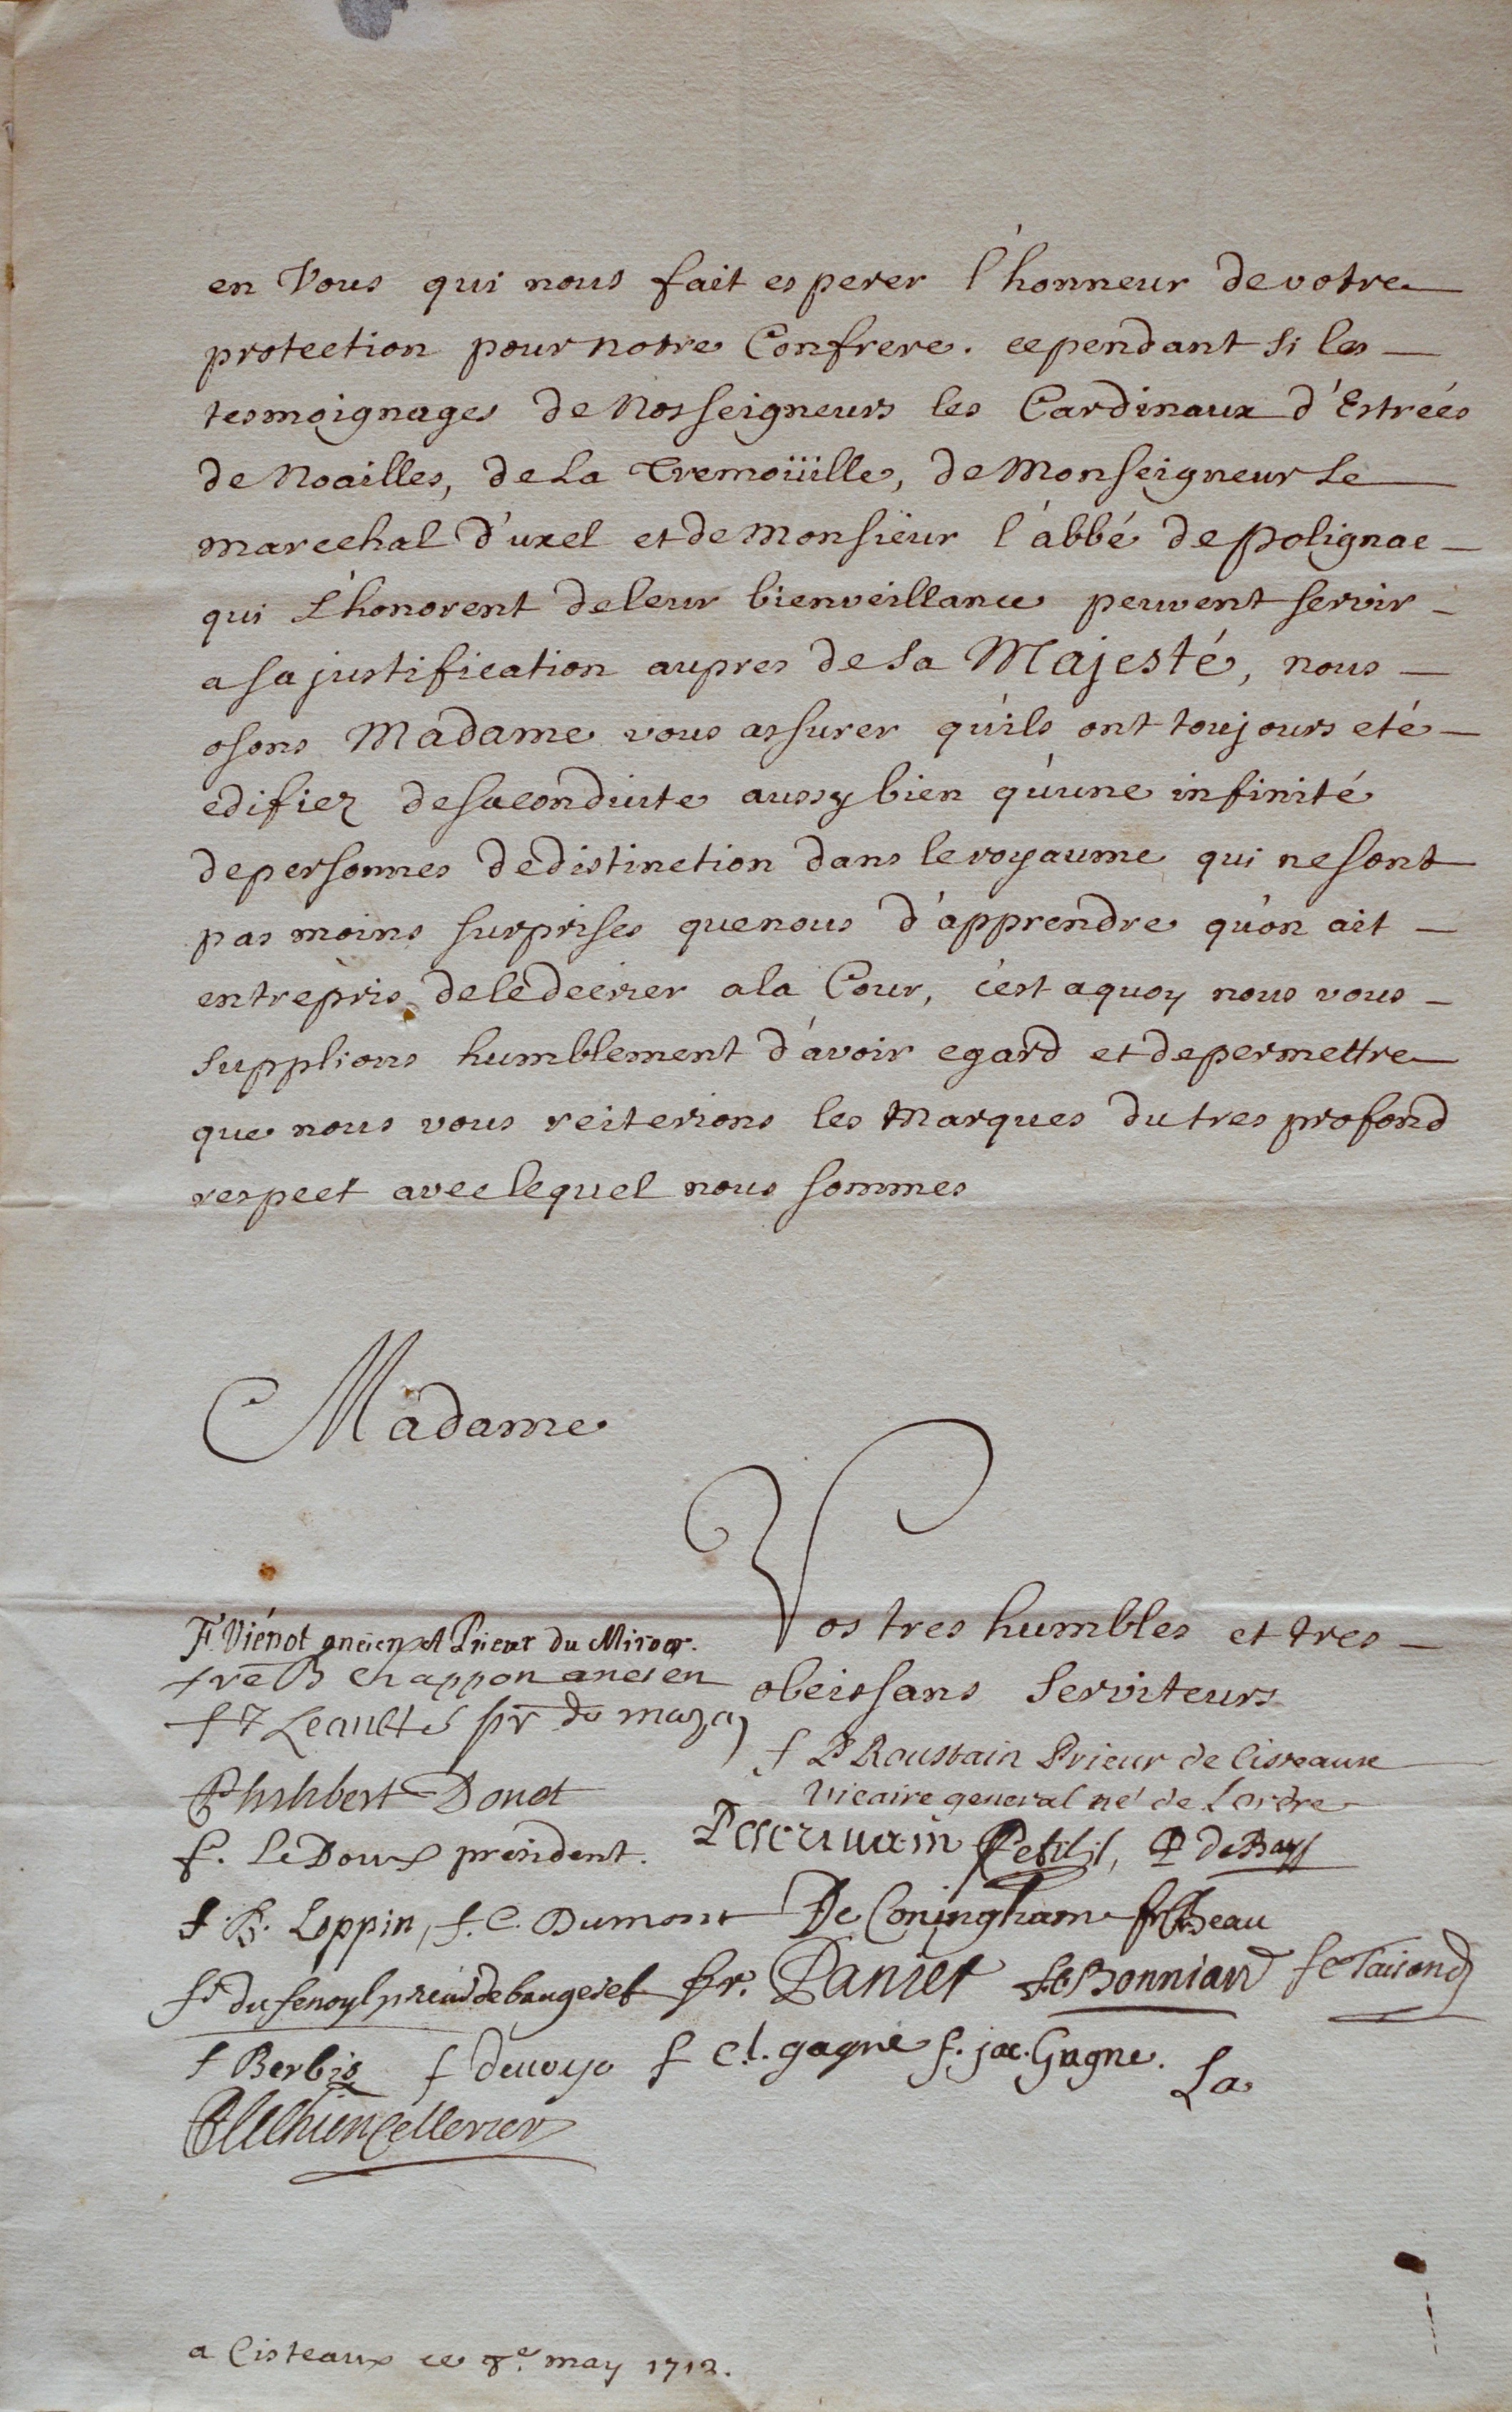 en Vous qui nous fait esperer l'honneur de votre
protection pour notre Confrere. cependant si les
tesmoignages de Nosseigneurs les Cardinaux d'Estrées
de Noailles, de La Tremoüille, de Monseigneur Le
marechal D'uxel et de Monsieur l'abbé de polignac
qui L'honorent de leur bienveillance peuvent servir
a sa justification aupres de Sa Majesté, nous
osons Madame vous assurer qu'ils ont toujours eté
edifiez de sa conduite aussy bien qu'une infinité
de personnes de distinction dans le royaume qui ne sont
pas moins surprises que nous d'apprendre qu'on ait
entrepris de le decrier a la Cour, c'est a quoy nous vous
supplions humblement d'avoir egard et de permettre
que nous vous reiterions les Marques du tres profond
respect avec lequel nous sommes
Madame
Vos tres humbles et tres
obeissans Serviteurs
F Viénot ancien et Prieur du Miroer.
frere B Chappon ancien
f Leaulté pr de
f Roustain Prieur de Cisteaux
Vicaire general né de Lordre
Philibert Donet
f. LeDoux president.
Lescrivain Petit, De Bay
f. B. Loppin, f. C. Dumont De Coningham Beau
fr du fenoyl prieur de baugerel fr. Daniel f Bonniard f C Taisand
f Berbis f devoyo f Cl. gagne f. jac. Gagne. La
Cellerier
a Cisteaux ce 8e. may 1712.